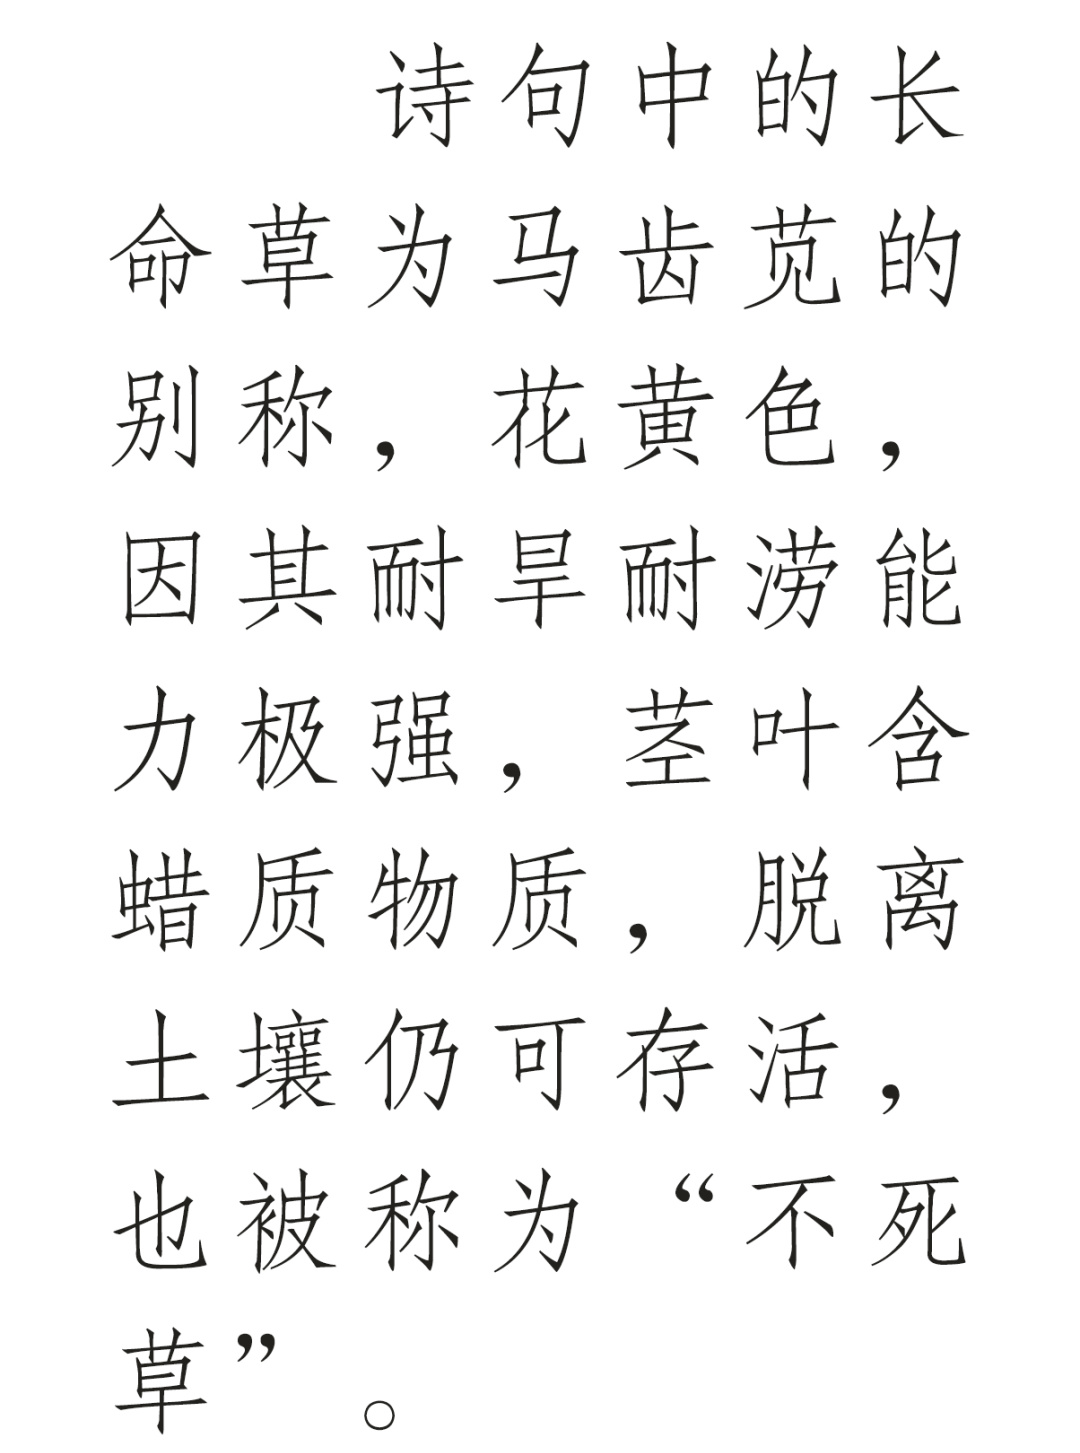 诗句中的长
命草为马齿苋的
别称，花黄色，
因其耐旱耐涝能
力极强，茎叶含
蜡质物质，脱离
土壤仍可存活，
也被称为“不死
草”。